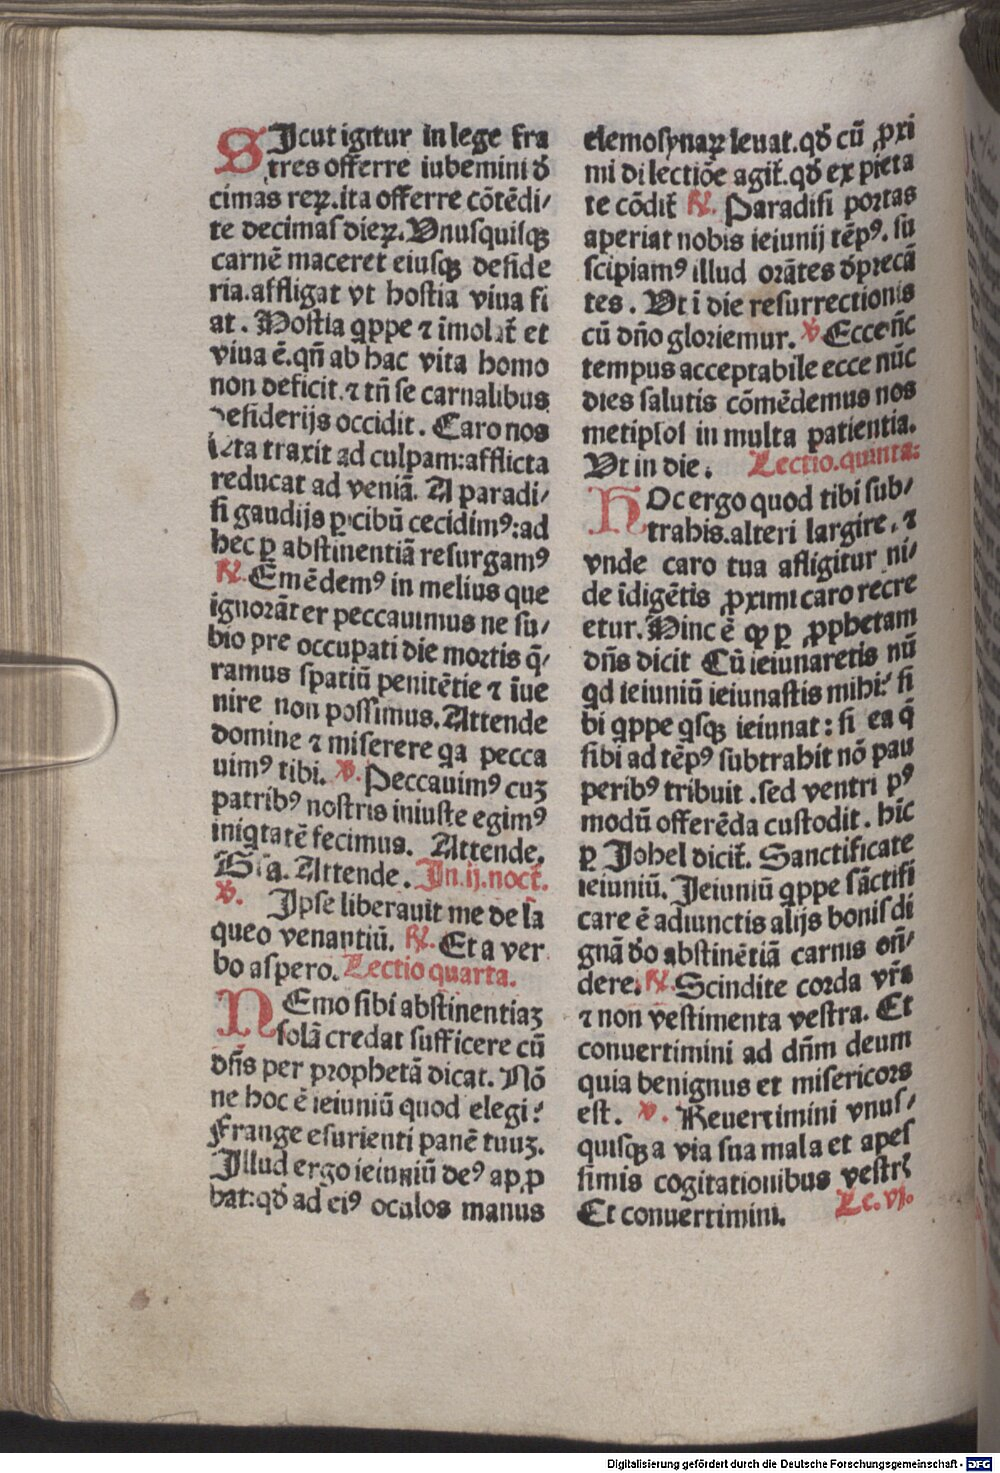 SIcut igitur in lege fra
tres offerre iubemini đ
cimas reꝝ. ita offerre cōtēdi/
te decimas dieꝝ. Unusquisqꝫ
carnē maceret eiusqꝫ deside
ria. affligat vt hostia viua fi
at. Hostia qͥppe ⁊ īmolat᷑ et
viua ē. qn̄ ab hac vita homo
non deficit. ⁊ tn̄ se carnalibus
desiderijs occidit. Caro nos
leta traxit ad culpam: afflicta
reducat ad veniā. A paradi/
si gaudijs ꝑ cibū cecidimꝰ: ad
hec ꝑ abstinentiā resurgamꝰ
℟. Emēdemꝰ in melius que
ignorāter peccauimus ne su/
bio pre occupati die mortis q̄/
ramus spatiū penitētie ⁊ īue
nire non possimus. Attende
domine ⁊ miserere qͥa pecca
uimꝰ tibi. ℣. Peccauimꝰ cuꝫ
patribꝰ nostris iniuste egimꝰ
iniqͥtatē fecimus. Attende.
Gͥla. Attende. In .ij. noct᷑.
℣. Ipse liberauit me de la
queo venantiū. ℟. Et a ver
bo aspero. Lectio quarta.
NEmo sibi abstinentiaꝫ
solā credat sufficere cū
dn̄s per prophetā dicat. Nō
ne hoc ē ieiuniū quod elegi?
Frange esurienti panē tuuꝫ.
Illud ergo ieiuniū deꝰ apꝓ
bat: qđ ad eiꝰ oculos manus
elemosynaꝝ leuat. qđ cū ꝓxi
mi dilectiōe agit᷑. qđ ex pieta
te cōdit᷑ ℟. Paradisi portas
aperiat nobis ieiunij tēpꝰ. su
scipiamꝰ illud orātes đprecā
tes. Ut ī die resurrectionis
cū dn̄o gloriemur. ℣ Ecce n̄c
tempus acceptabile ecce nūc
dies salutis cōmēdemus nos
metipsos in multa patientia.
Ut in die. Lectio. quinta:
HOc ergo quod tibi sub/
trahis. alteri largire, ⁊
vnde caro tua afligitur ni/
de īdigētis ꝓximi caro recre
etur. Hinc ē ꝙ ꝑ ꝓphetam
dn̄s dicit Cū ieiunaretis nū
qd ieiuniū ieiunastis mihi? si
bi qͥppe qͥsqꝫ ieiunat: si ea q̄
sibi ad tēpꝰ subtrahit nō pau
peribꝰ tribuit. sed ventri pꝰ
modū offerēda custodit. hīc
ꝑ Johel dicit᷑. Sanctificate
ieiuniū. Jeiuniū qͥppe sāctifi
care ē adiunctis alijs bonis di
gnā đo abstinētiā carnis on̄/
dere. ℟. Scindite corda vr̄a
⁊ non vestimenta vestra. Et
conuertimini ad dn̄m deum
quia benignus et misericors
est. ℣. Reuertimini vnus/
quisqꝫ a via sua mala et a pes
simis cogitationibus vestrꝭ
Et conuertimini. Lc. vj.
Digitalisierung gefördert durch die Deutsche Forschungsgemeinschaft - DFG